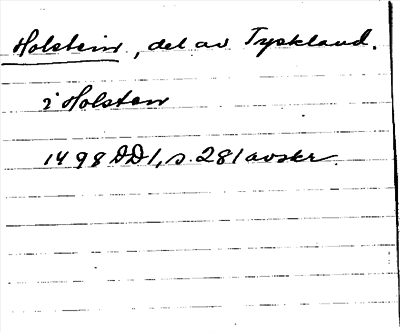 Holstein, del av Tyskland.
i Holsten
1498 DD1, s. 281 avskr.